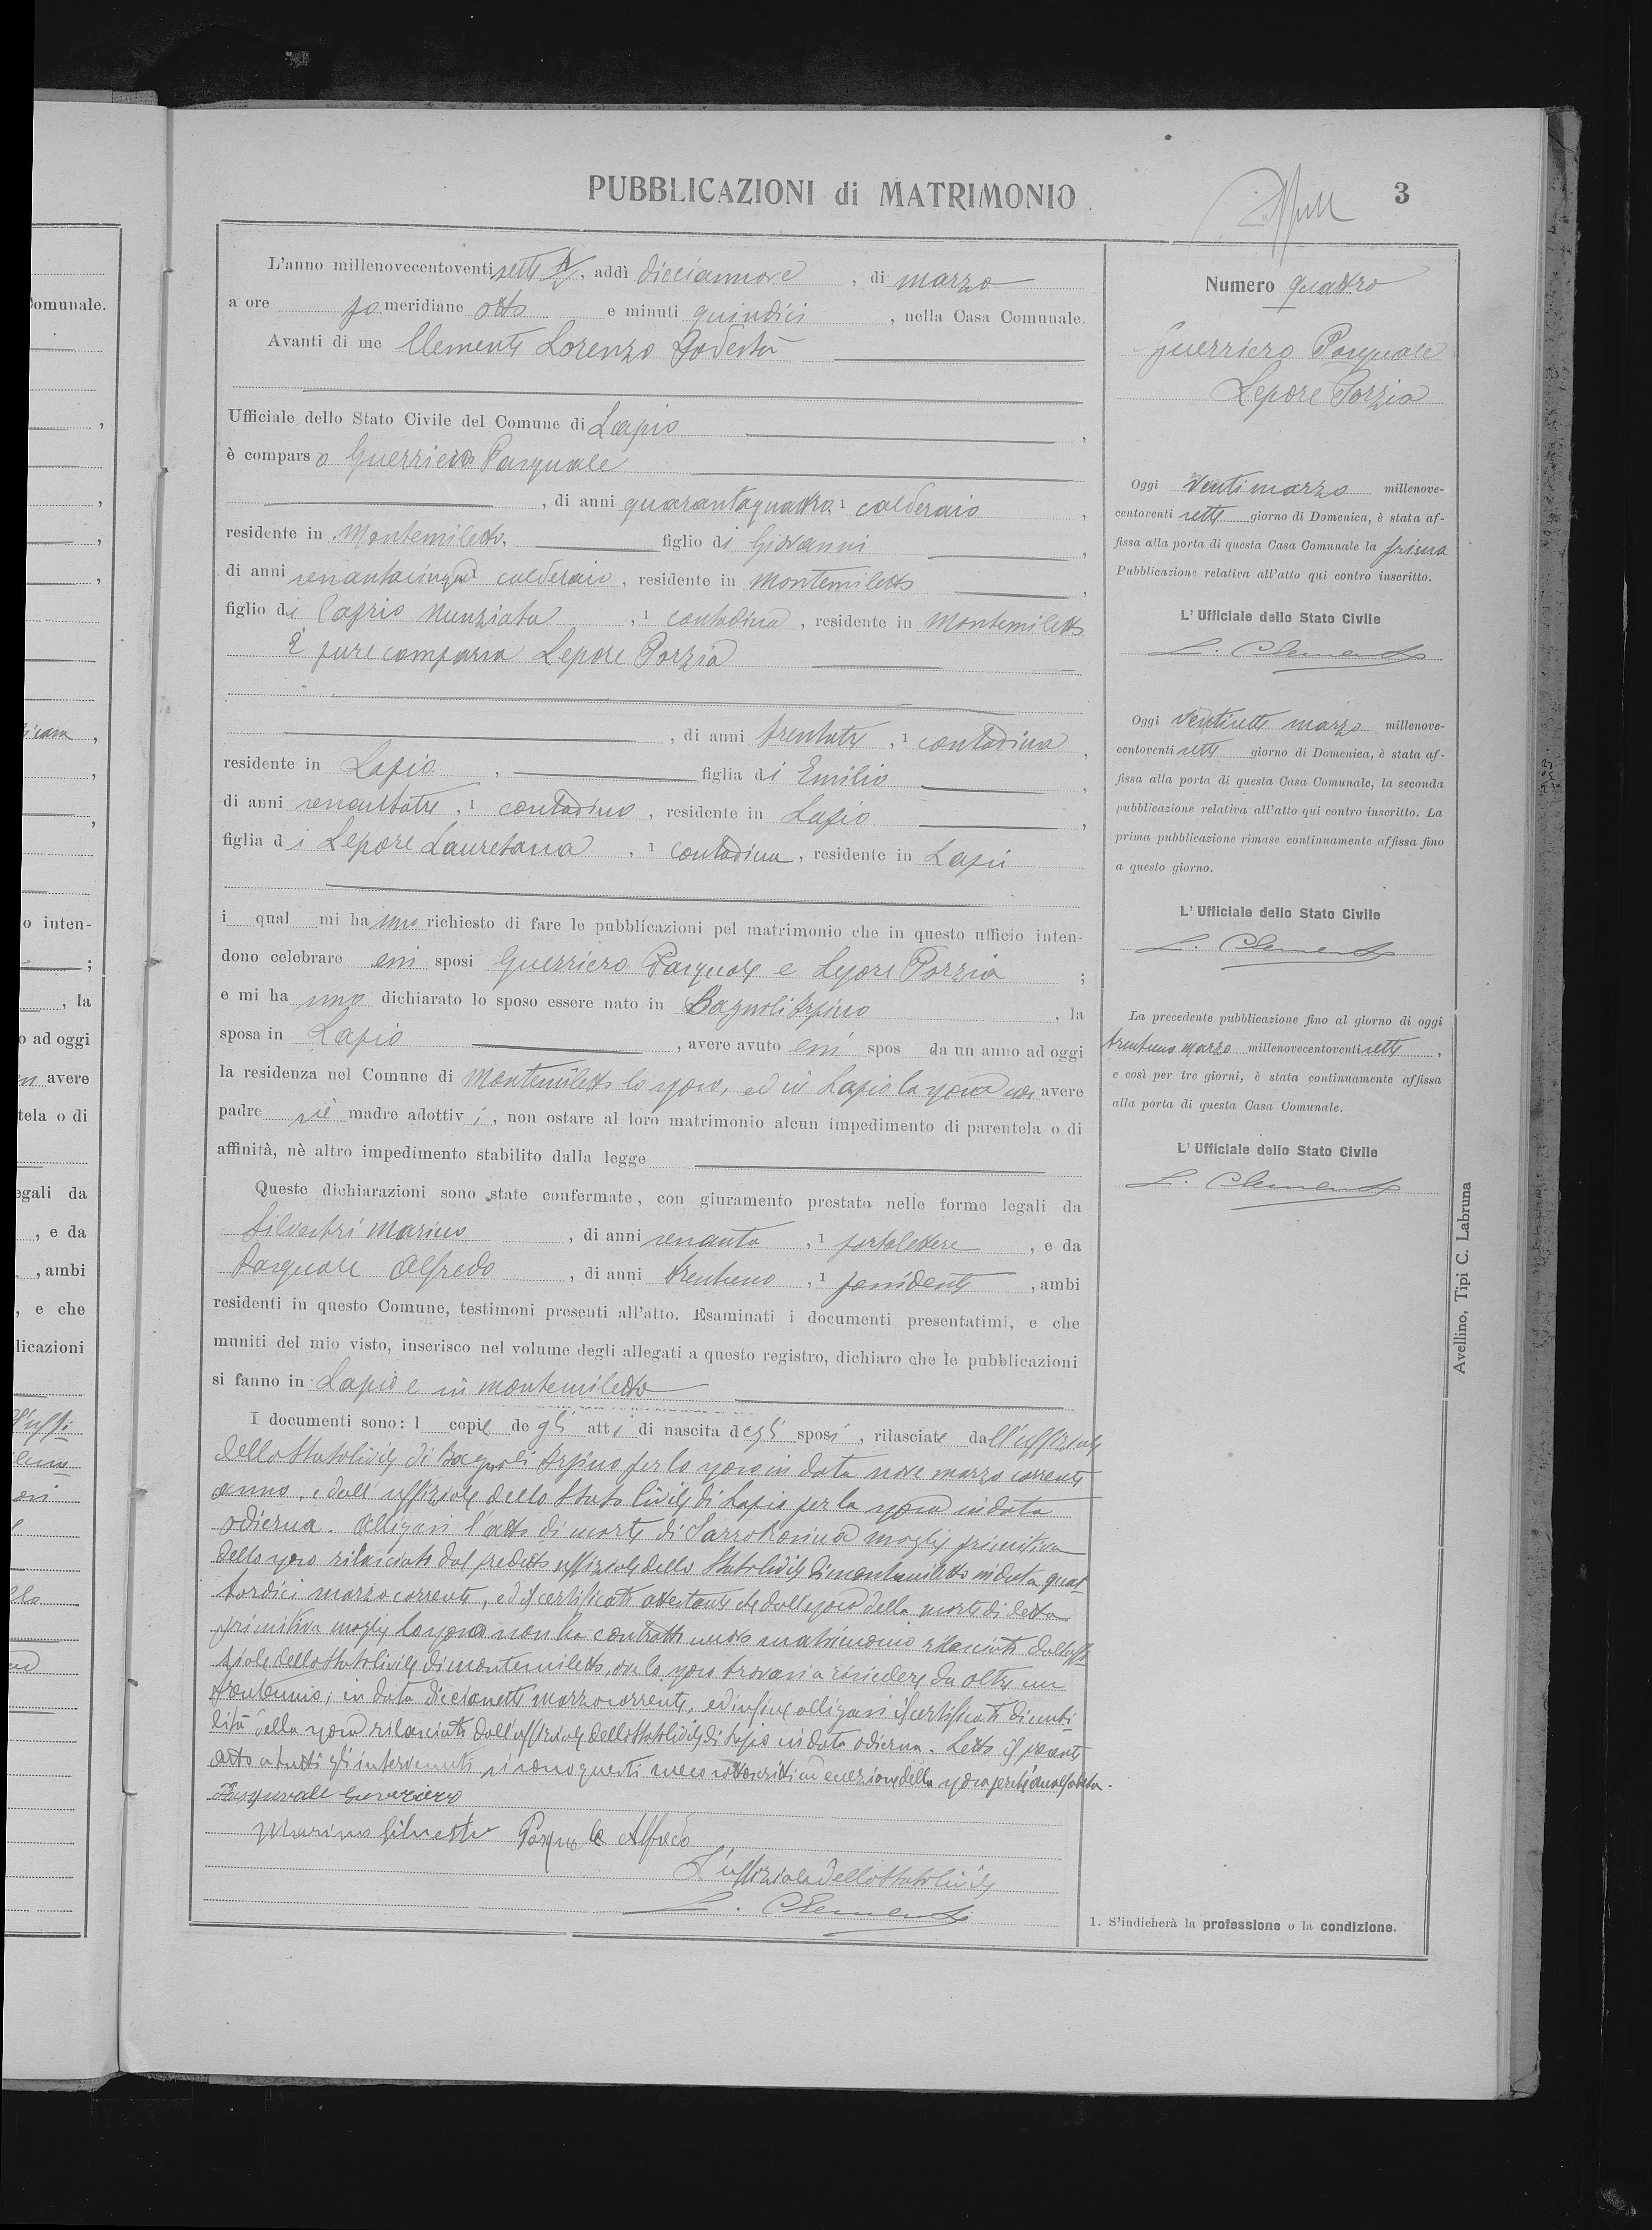 PUBBLICAZIONI di MATRIMONIO
3
L'anno millenovecentoventi sette, addì dicciannove, di marzo
a ore po meridiane otto e minuti quindici, nella Casa Comunale.
Avanti di me Clemente Lorenzo Podestà
Ufficiale dello Stato Civile del Comune di Lapio,
è comparso Guerriero Pasquale
, di anni quarantaquattro, 1 calderaio,
residente in Montemiletto, figlio di Giovanni,
di anni senantacinque calderaio, residente in Montemiletto,
figlio di Caprio Nunziata, 1 contadina, residente in Montemiletto
È pure comparsa Lepore Porzia
, di anni trentatre, 1 contadina,
residente in Lapio, figlia di Emilio,
di anni senantatre, 1 contadino, residente in Lapio,
figlia di Lepore Lauretana, 1 contadina, residente in Lapio
i qual mi hanno richiesto di fare le pubblicazioni pel matrimonio che in questo ufficio inten-
dono celebrare essi sposi Guerriero Pasquale e Lepore Porzia;
e mi hanno dichiarato lo sposo essere nato in Bagnoli Irpino, la
sposa in Lapio, avere avuto essi spos da un anno ad oggi
la residenza nel Comune di Montemiletto lo sposo, ed in Lapio la sposa non avere
padre nè madre adottivi, non ostare al loro matrimonio alcun impedimento di parentela o di
affinità, nè altro impedimento stabilito dalla legge
Queste dichiarazioni sono state confermate, con giuramento prestato nelle forme legali da
Silvestri Marino, di anni senanta, 1 portalettere, e da
Pasquale Alfredo, di anni trentuno, 1 possidente, ambi
residenti in questo Comune, testimoni presenti all'atto. Esaminati i documenti presentatimi, e che
muniti del mio visto, inserisco nel volume degli allegati a questo registro, dichiaro che le pubblicazioni
si fanno in Lapio e in Montemiletto
I documenti sono: l copie degli atti di nascita degli sposi, rilasciate dall'uffiziale
dello Stato Civile di Bagnoli Irpino per lo sposo in data nove marzo corrente
anno, e dall'uffiziale dello Stato Civile di Lapio per la sposa in data
odierna. Alligasi l'atto di morte di Sarro Rosina moglie primitiva
dello sposo rilasciato dal predetto uffiziale dello Stato Civile di Montemiletto in data quat
tordici marzo corrente, ed il certificato attestante che dall'epoca della morte di detta
primitiva moglie lo sposo non ha contratto nuovo matrimonio rilasciato dall'uffi
ziale dello Stato Civile di Montemiletto, ove lo sposo trovasi a risiedere da oltre un
trentennio, in data diccianette marzo corrente, ed infine alligasi il certificato di nubi
lità della sposa rilasciato dall'uffiziale dello Stato Civile di Lapio in data odierna. Letto il presente
atto a tutti gli intervenuti si sono questi meco sottoscritti ad eccezione della sposa perchè analfabeta.
Pasquale Guerriero
Marino Silvestri Pasquale Alfredo
L'uffiziale dello Stato Civile
L. Clemente
Numero quattro
Guerriero Pasquale
Lepore Porzia
Oggi venti marzo millenove-
centoventi sette giorno di Domenica, è stata af-
fissa alla porta di questa Casa Comunale la prima
Pubblicazione relativa all'atto qui contro inscritto.
L'Ufficiale dello Stato Civile
L. Clemente
Oggi ventisette marzo millenove-
centoventi sette giorno di Domenica, è stata af-
fissa alla porta di questa Casa Comunale, la seconda
pubblicazione relativa all'atto qui contro inscritto. La
prima pubblicazione rimase continuamente affissa fino
a questo giorno.
L'Ufficiale dello Stato Civile
L. Clemente
La precedente pubblicazione fino al giorno di oggi
trentuno marzo millenovecentoventi sette,
e così per tre giorni, è stata continuamente affissa
alla porta di questa Casa Comunale.
L'Ufficiale dello Stato Civile
L. Clemente
1. S'indicherà la professione o la condizione.
Avellino, Tipi C. Labruna
omunale.
o inten-
;
, la
o ad oggi
avere
tela o di
egali da
, e da
, ambi
, e che
licazioni